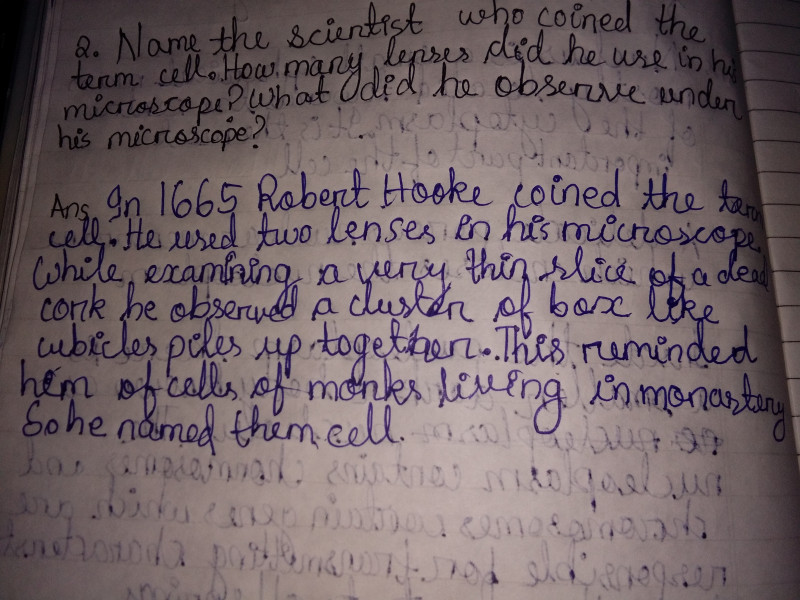 2. Name the scientist who coined the
term cell. How many lenses did he use in his
microscope? What did he observe under
his microscope?
Ans In 1665 Robert Hooke coined the term
cell. He used two lenses in his microscope
While examining a very thin slice of a dead
cork he observed a cluster of box like
cubicles piles up together. This reminded
him of cells of monks living in monastery
So he named them cell.